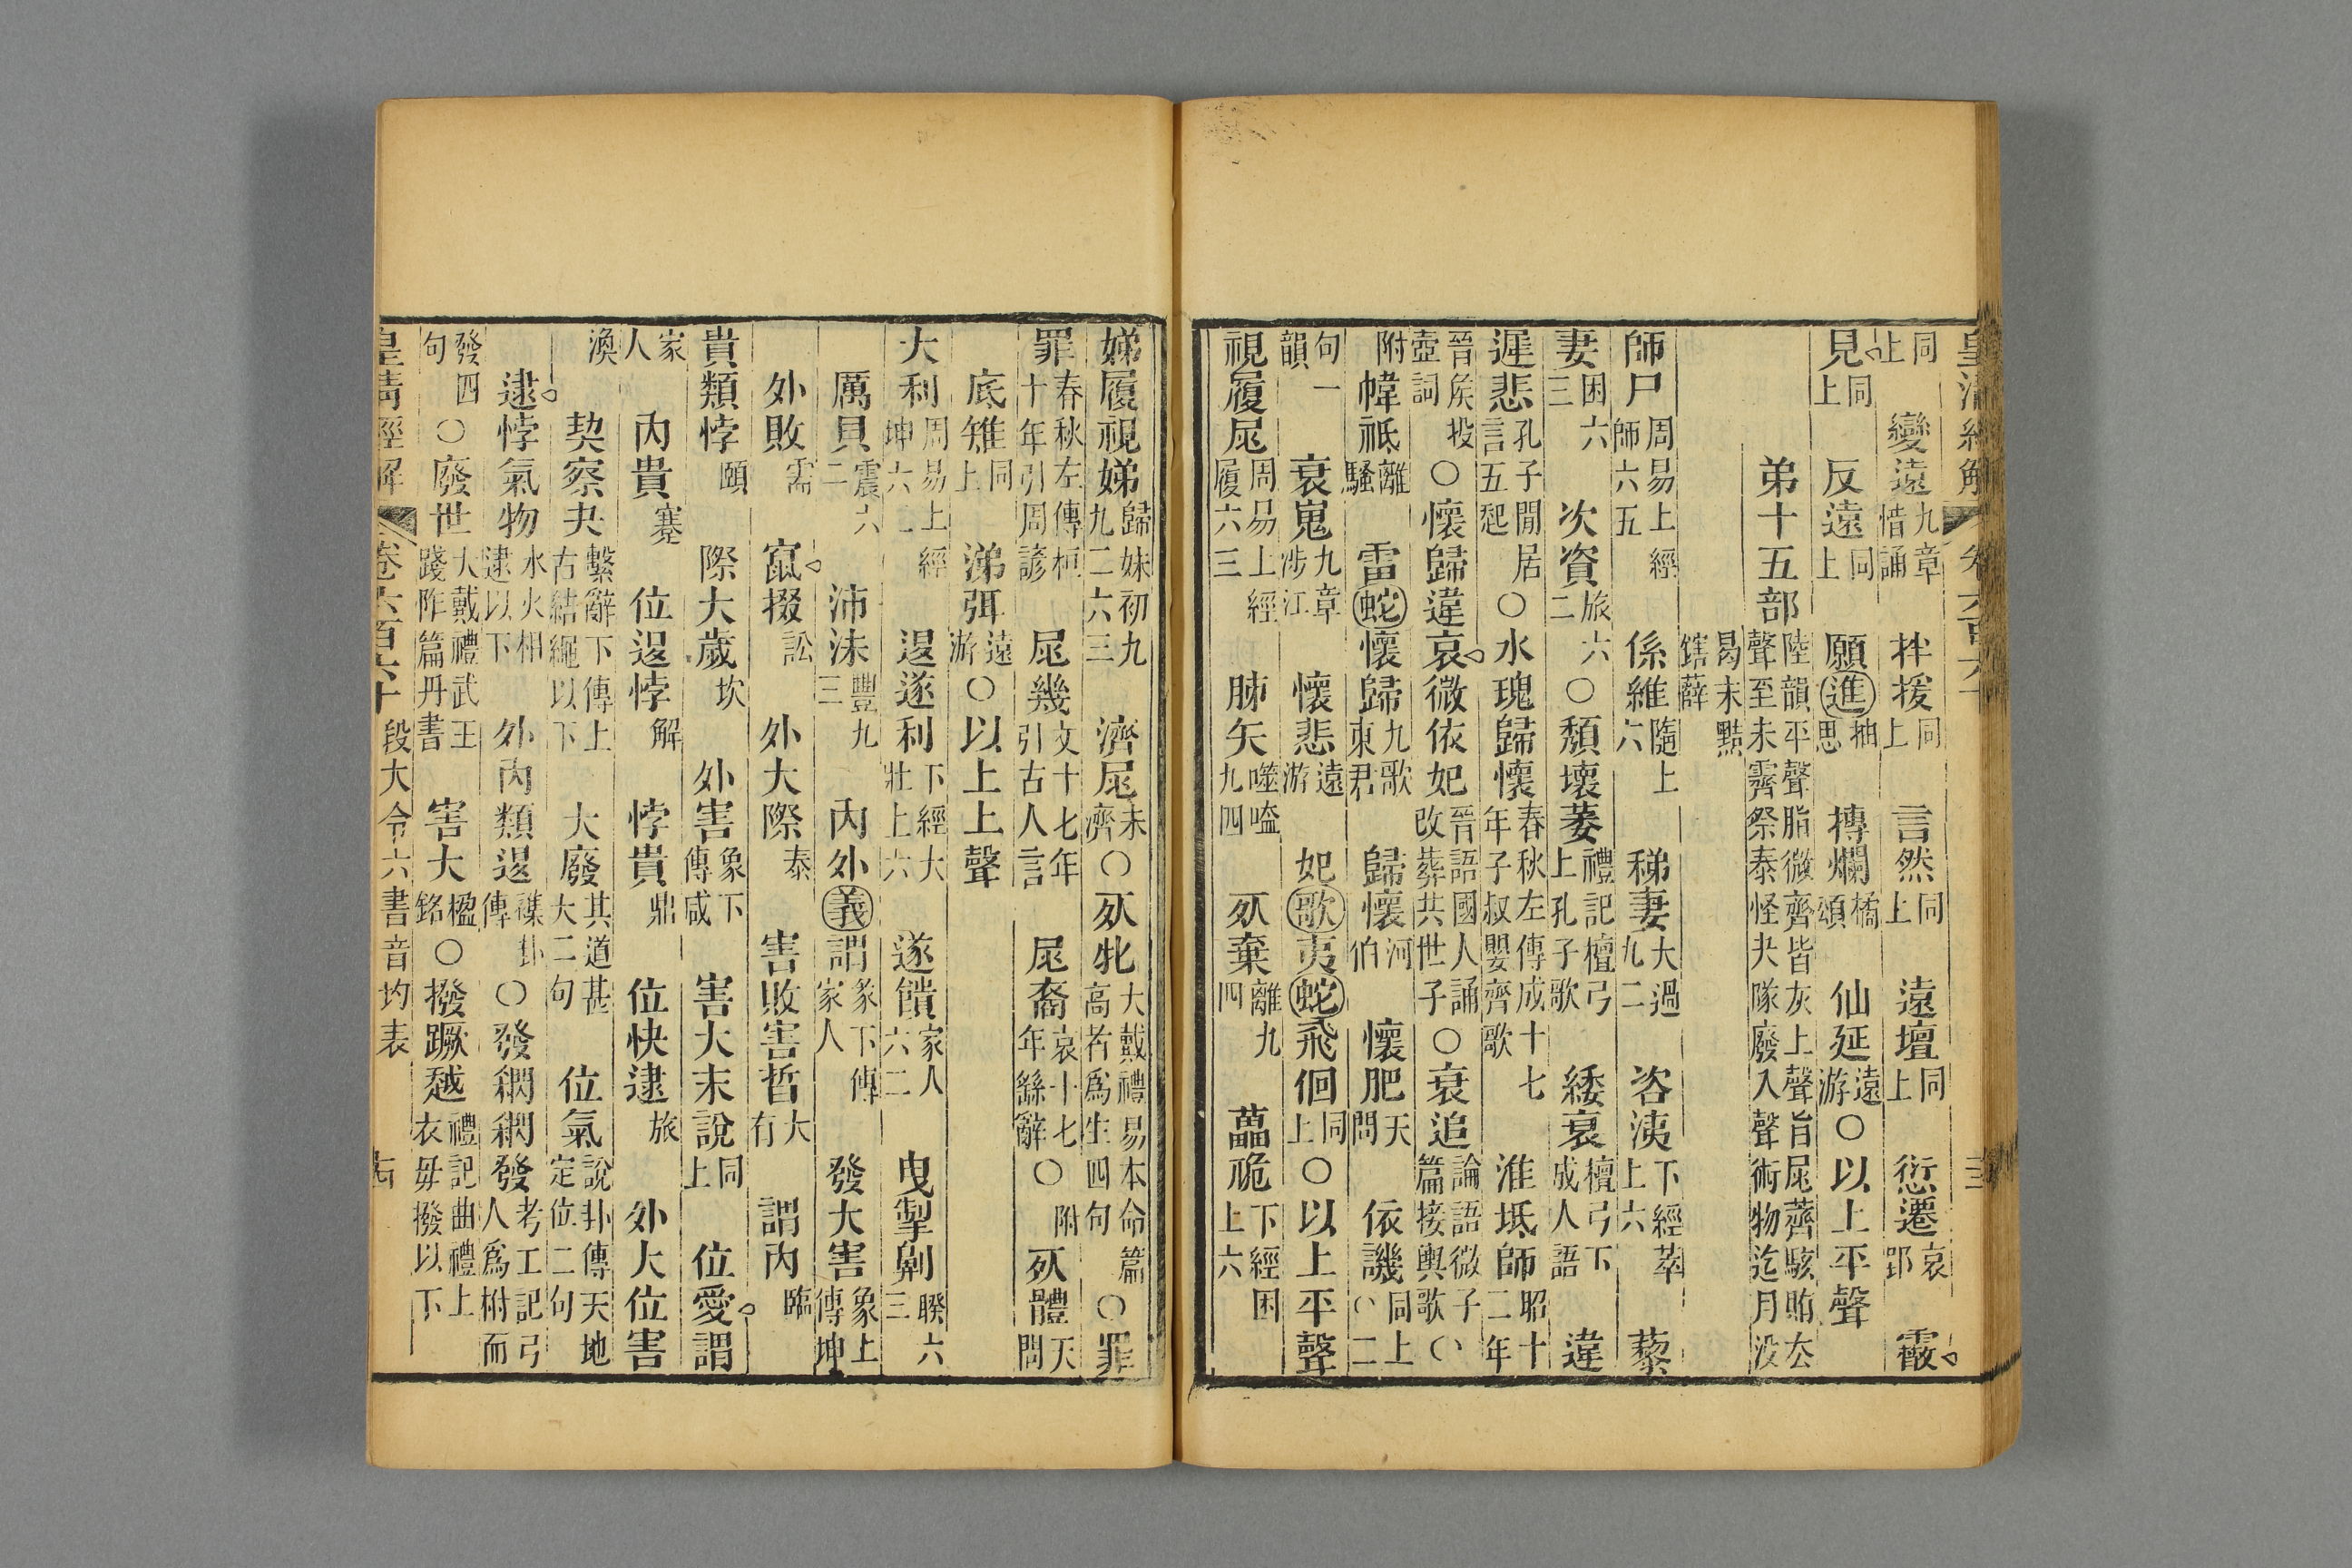 皇清經解 卷六百六十 三
同上 變遠九章惜誦 拌援同上 言然同上 遠壇同上 愆遷哀郢 霰
見同上 反遠同上 願進抽思 摶爛橘頌 仙延遠游○以上平聲
弟十五部陸韻平聲脂微齊皆灰上聲旨尾薺駭賄去聲至未霽祭泰怪夬隊廢入聲術物迄月沒
曷末黠鎋薛
師尸周易上經師六五 係維隨上六 稊妻大過九二 咨洟下經萃上六 藜
妻困六三 次資旅六二○頹壞萎禮記檀弓上孔子歌 緌衰檀弓下成人語 違
遲悲孔子閒居言五起○水瑰歸懷春秋左傳成十七年子叔嬰齊歌 淮坻師昭十二年
晉矦投壺詞○懷歸違哀微依妃晉語國人誦改葬共世子○衰追論語微子篇接輿歌○
附 幃祗離騷 雷蛇懷歸九歌東君 歸懷河伯 懷肥天問 依譏同上○二
句一韻 衰嵬九章涉江 懷悲遠游 妃歌夷蛇飛佪同上○以上平聲
視履尾周易上經履六三 胏矢噬嗑九四 死棄離九四 藟臲下經困上六
娣履視娣歸妹初九九二六三 濟尾未濟○死牝大戴禮易本命篇高者爲生四句○罪
罪春秋左傳桓十年引周諺 尾幾文十七年引古人言 尾裔哀十七年繇辭○附 死體天問
底雉同上 涕弭遠游○以上上聲
大利周易上經坤六二 退遂利下經大壯上六 遂饋家人六二 曳掣劓睽六三
厲貝震六二 沛沬豐九三 內外義謂彖下傳家人 發大害象上傳坤
外敗需 竄掇訟 外大際泰 害敗害晢大有 謂內臨
貴類悖頤 際大歲坎 外害象下傳咸 害大末說同上 位愛謂
家人 內貴蹇 位退悖解 悖貴鼎 位快逮旅 外大位害
渙 契察夬繫辭下傳上古結繩以下 大廢其道甚大二句 位氣說卦傳天地定位二句
逮悖氣物水火相逮以下 外內類退襍卦傳○發䌌䌌發考工記弓人爲柎而
發四句○廢世大戴禮武王踐阼篇丹書 害大楹銘○撥蹶越禮記曲禮上衣毋撥以下
皇清經解 卷六百六十 段大令六書音均表 古